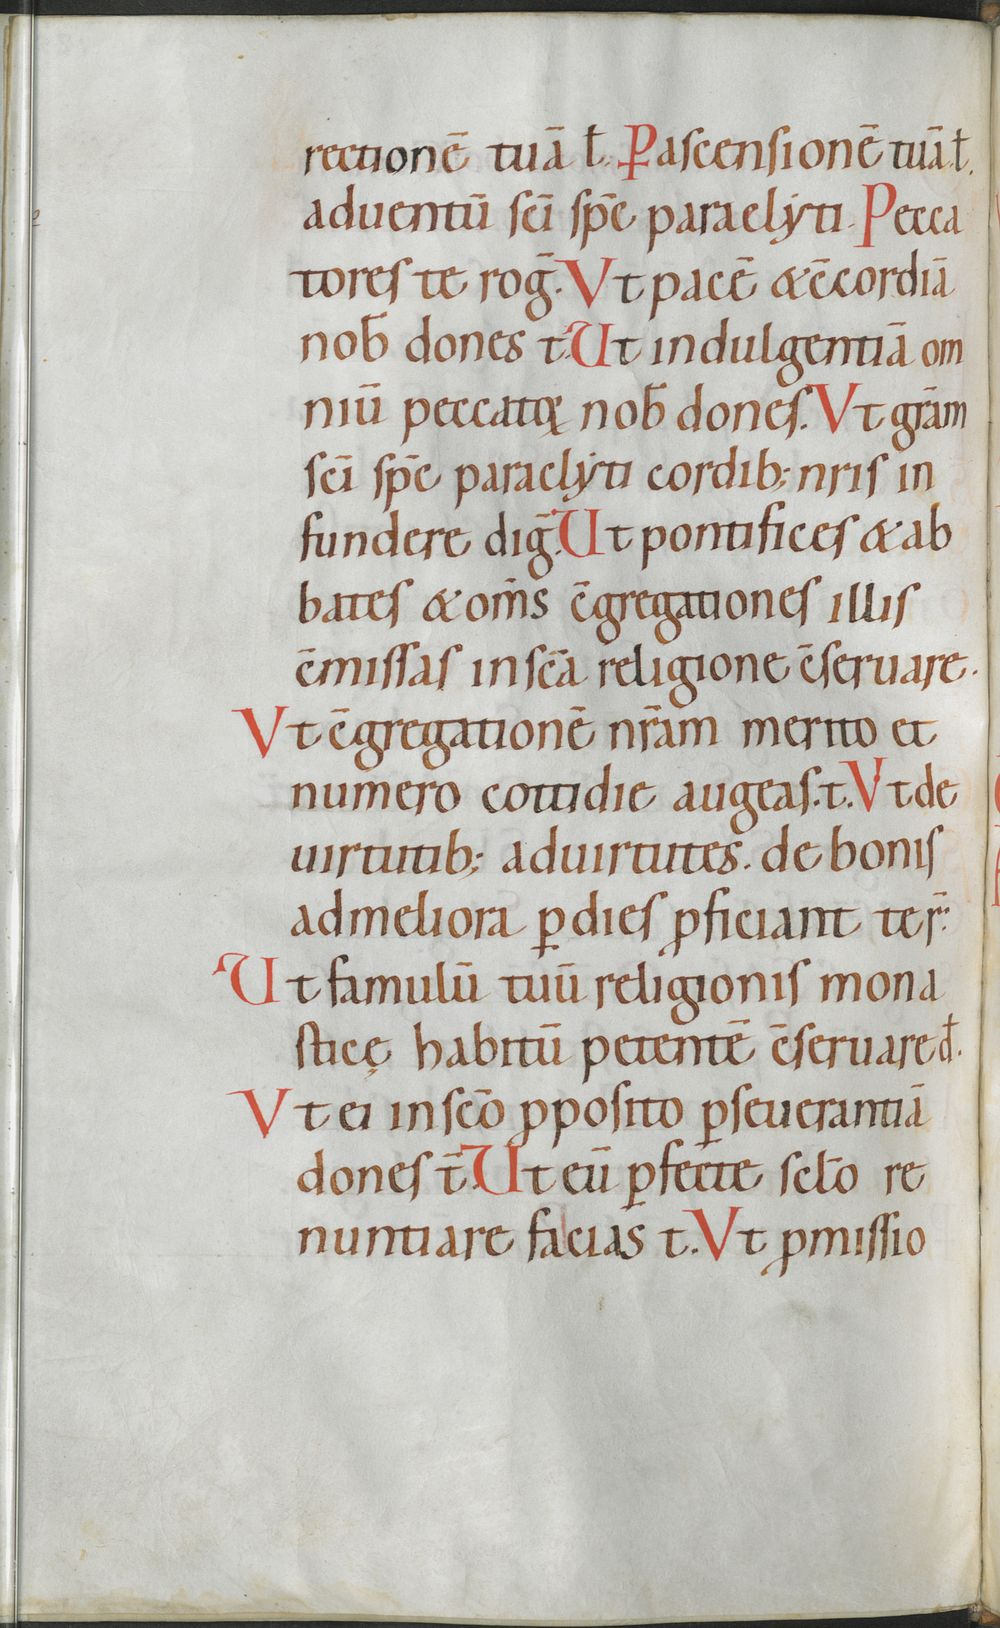 rectionē tuā ł. Ꝑ ascensionē tuā. ł.
aduentū sc̄i sp̄c paraclẏti. Pecca
tores te roḡ. Vt pacē & c̄cordiā
nob̄ dones t. Ut indulgentiā om
niū peccatoꝝ nob̄ dones. Vt gr̄am
sc̄i sp̄c paraclẏti cordib; nris in
fundere diḡ. Ut pontifices & ab
bates & om̄s c̄gregationes illis
c̄missas in sc̄a religione c̄seruare.
Vt c̄gregationē nr̄am merito et
numero cottidie augeas. t. Vt de
uirtutib; ad uirtutes. de bonis
ad meliora ꝑ dies ꝓficiant te r̄.
Ut famulū tuū religionis mona
sticę habitū petentē c̄seruare d̄.
Vt ei in sc̄o ꝓposito ꝑseuerantiā
dones t̄. Ut eū ꝑfecte scl̄o re
nuntiare facias t. Vt ꝓmissio